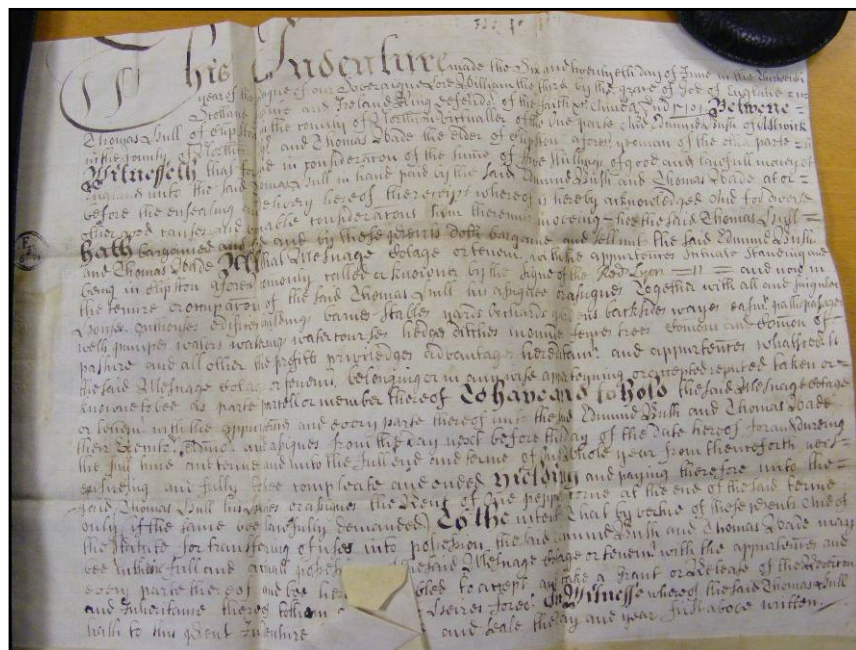 This Indenture made the Six and twentyeth day of June in the Thirteenth
year of the Reigne of our Soveraigne Lord William the third by the grace of God of England
Scotland and Ireland King defendr of the faith &c Annoq Dni 1701 Betweene
Thomas Bull of Clipston in the County of Northton Victualler of the one parte And Edmund Bush of
in the County of and Thomas Wade the elder of Clipston aforesd yeoman of the other parte
Witnesseth that for and in consideracon of the summe of five shillings of good and lawfull money of
England unto the said Thomas Bull in hand paid by the said Edmund Bush and Thomas Wade at or
before the ensealing and delivery hereof the receipt whereof is hereby acknowledged And for diverse
other good causes and valuable consideracons him thereunto moveing hee the said Thomas Bull
Hath bargained and sold and by these presents doth bargaine and sell unto the said Edmund Bush
and Thomas Wade All that Messuage Cotage or tenemt with the appurtences scituate standing and
being in Clipston aforesd comonly called or knowne by the signe of the Red Lyon and now in
the tenure or occupacon of the said Thomas Bull his assignee or assignes Together with all and singular
houses outhouses edifices buildings barnes stables yards orchards gardens backsides wayes easmts paths passages
wells pumpes waters watering watercourses hedges ditches mounds fences trees Comons and Comon of
pasture and all other the profitts priviledges advantages hereditamts and appurtences whatsoever to
the said Messuage Cotage or tenemt belonging or in any wise apperteyning or accepted reputed taken or
knowne to bee as parte parcell or member thereof To have and to hold the said Messuage Cotage
or tenemt with the appurtences and every parte thereof unto the said Edmund Bush and Thomas Wade
their Executrs Admrs and assignes from the day next before the day of the date hereof for and dureing
the full time and terme and unto the full end and terme of one whole year from thenceforth next
ensueing and fully to bee compleate and ended Yielding and paying therefore unto the
said Thomas Bull his heires or assignes the Rent of One pepper corne at the end of the said terme
only if the same bee lawfully demanded To the intent that by vertue of these presents And of
the Statute for transferring of uses into possession the said Edmund Bush and Thomas Wade may
bee in the full and actuall possession of the said Messuage Cotage or tenemt with the appurtences and
every parte thereof and bee hereby enabled to accept and take a grant or Release of the Revercon
and Inheritance thereof to them Heires forever In Witnesse whereof the said Thomas Bull
hath to this present Indenture and seale the day and year first above written